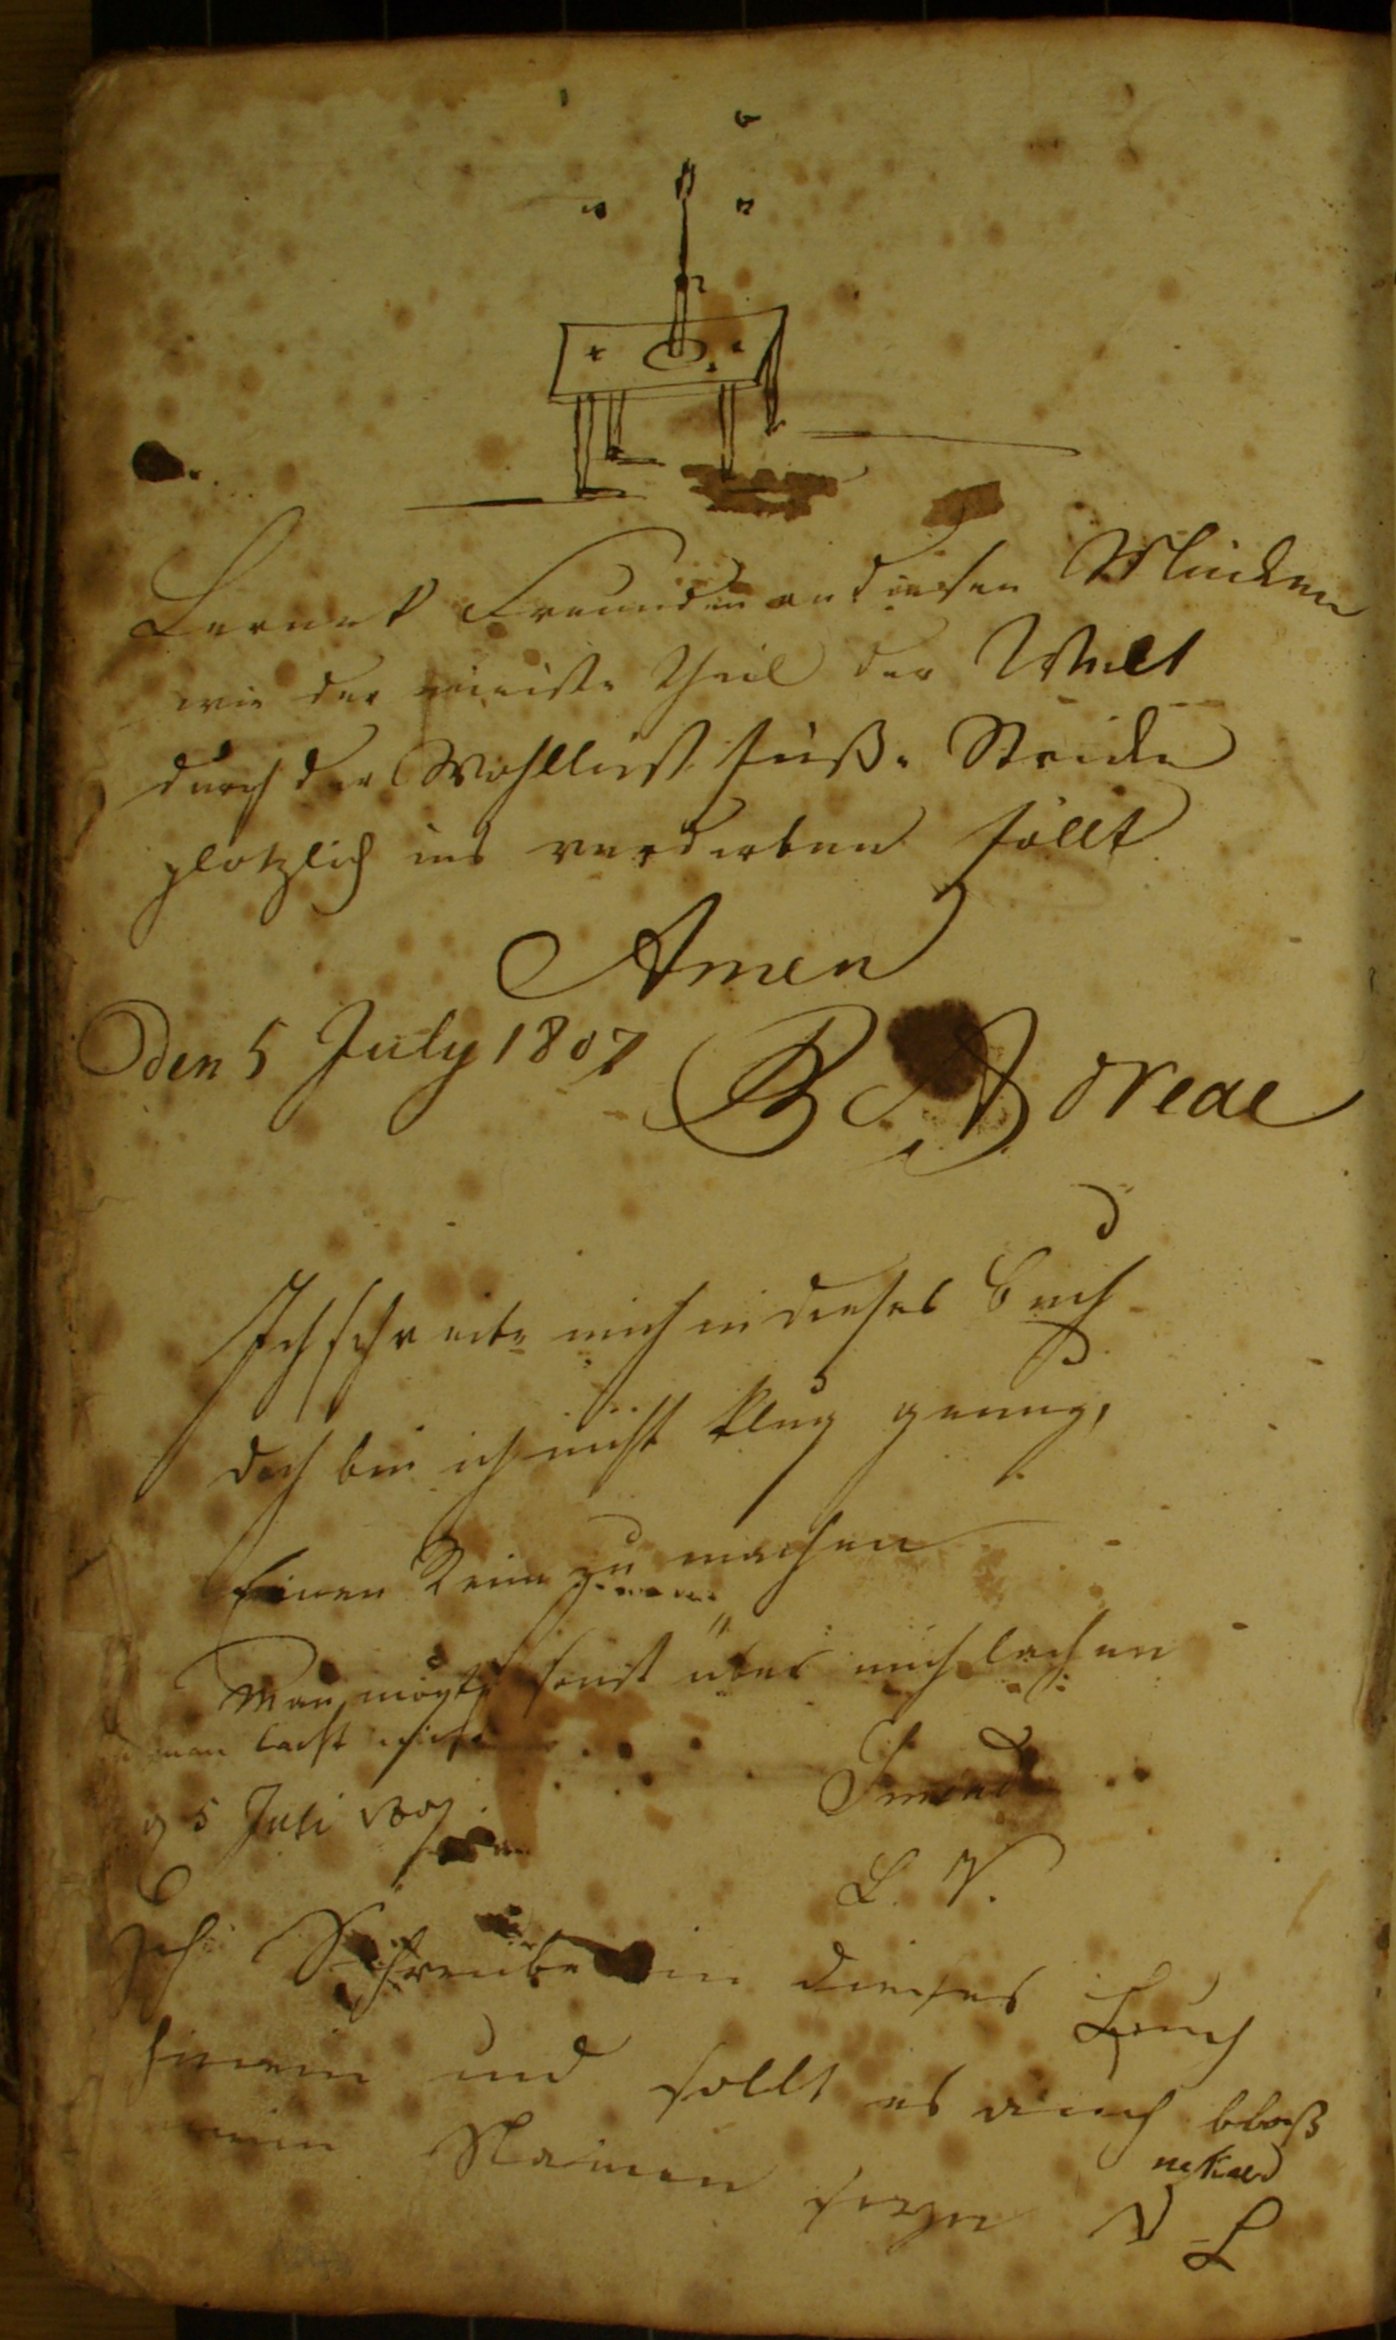 Lernet Freunde an diesen Mücken
wie der meiste Theil der Welt
durch der Wohllust süße Stricke
plotzlich ins verderben fällt
Amen
den 5 July 1807
Ich schreibe mich in dieses Buch
doch bin ich nicht klug genug,
Einen Reim zu machen
Man mögte sonst über mich lachen
man lacht nicht
5 Juli 1807
L. V.
Ich Schreibe in dieses Buch
hinein und sollt es auch bloß
mein Namen seyn